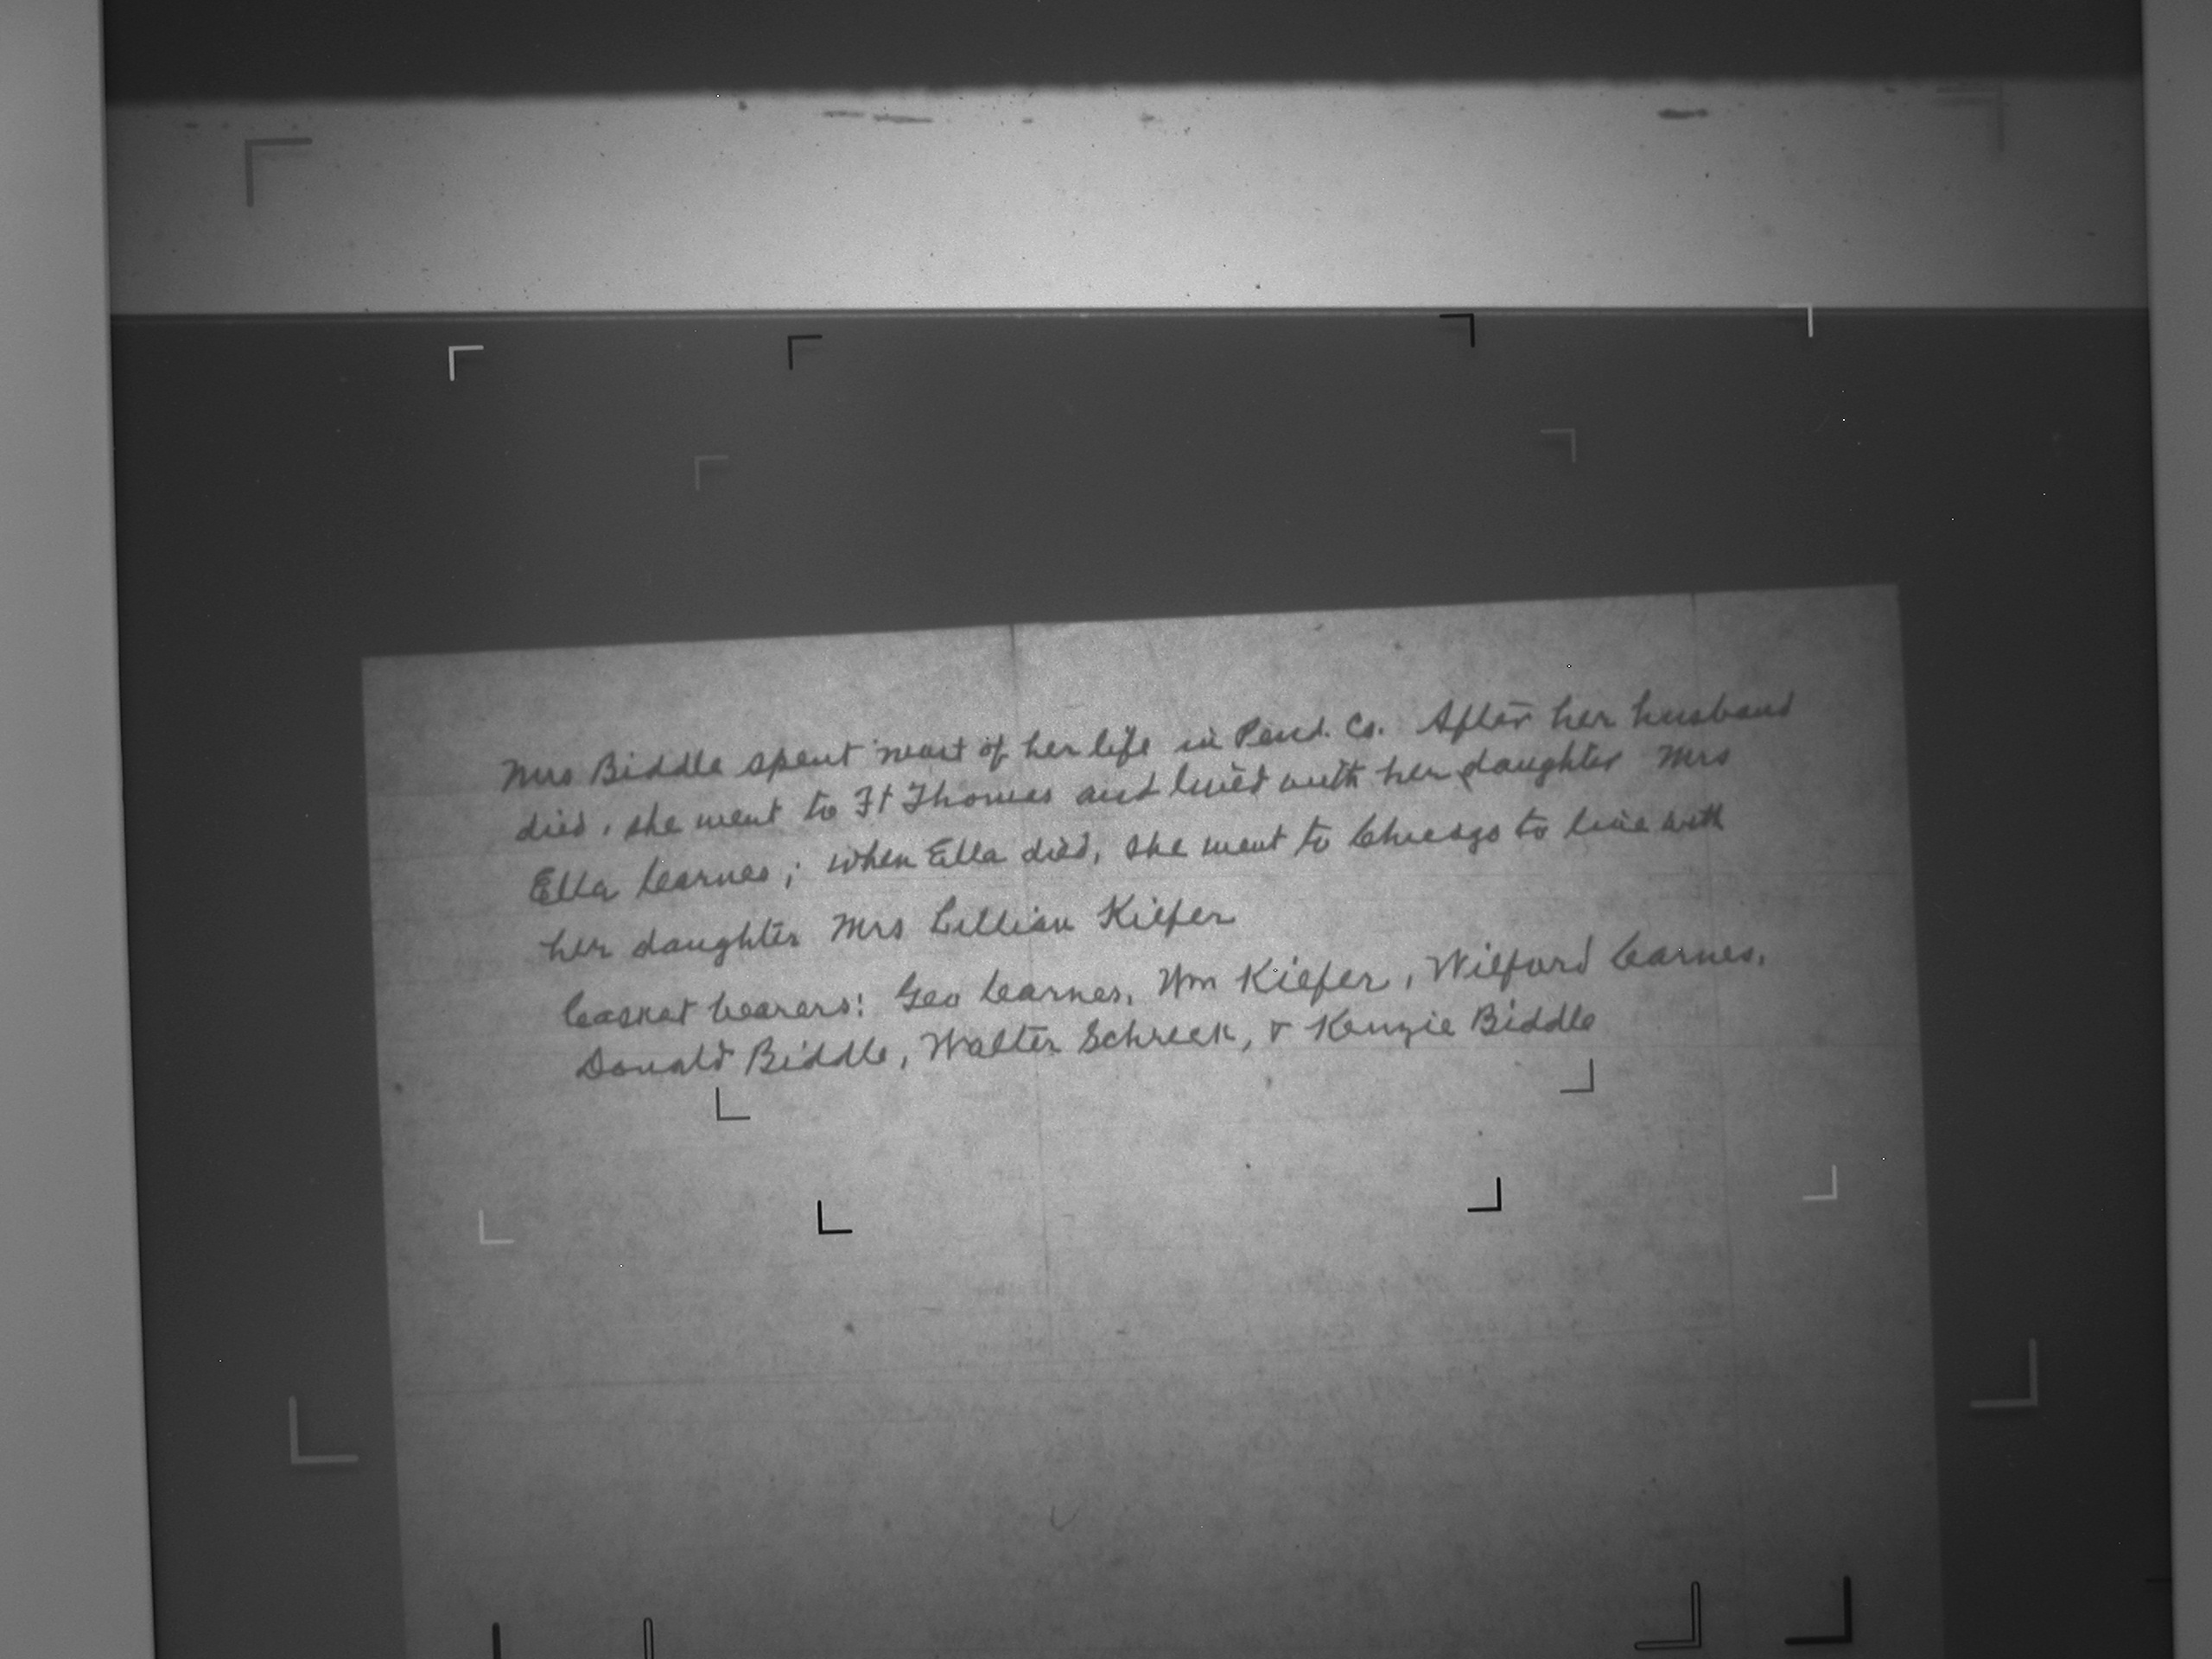 Mrs Biddle spent most of her life in Pend. Co. After her husband
died, she went to Ft Thomas and lived with her daughter Mrs
Ella Carnes; when Ella died, she went to Chicago to live with
her daughter Mrs Lillian Kiefer
Casket bearers: Geo Carnes, Wm Kiefer, Wilford Carnes,
Donald Biddle, Walter Schreck, & Kenzie Biddle